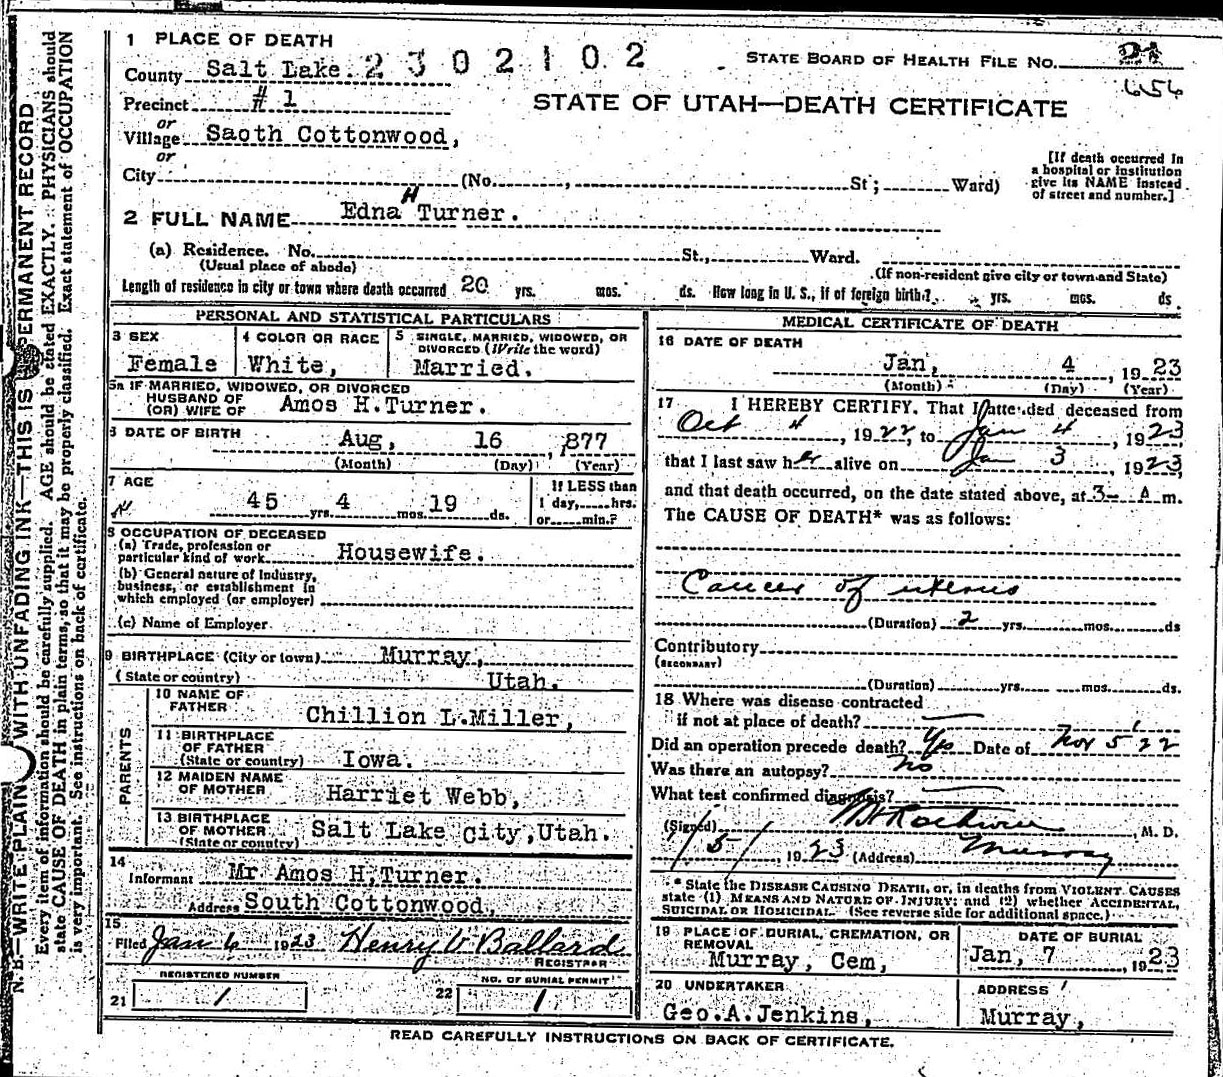 N. B.—WRITE PLAINLY WITH UNFADING INK—THIS IS A PERMANENT RECORD
Every item of information should be carefully supplied. AGE should be stated EXACTLY. PHYSICIANS should
state CAUSE OF DEATH in plain terms, so that it may be properly classified. Exact statement of OCCUPATION
is very important. See instructions on back of certificate.
1 PLACE OF DEATH
County Salt Lake. 2302102
STATE BOARD OF HEALTH FILE NO. 21
656
Precinct # 1
STATE OF UTAH—DEATH CERTIFICATE
or
Village Saoth Cottonwood,
or
City (No. , St; Ward)
[If death occurred in
a hospital or institution
give its NAME instead
of street and number.]
2 FULL NAME Edna H Turner.
(a) Residence. No. St., Ward.
(Usual place of abode) (If non-resident give city or town and State)
Length of residence in city or town where death occurred 20 yrs. mos. ds. How long in U. S., if of foreign birth? yrs. mos. ds
PERSONAL AND STATISTICAL PARTICULARS
3 SEX Female
4 COLOR OR RACE White,
5 SINGLE, MARRIED, WIDOWED, OR
DIVORCED (Write the word)
Married.
5a IF MARRIED, WIDOWED, OR DIVORCED
HUSBAND OF
(OR) WIFE OF Amos H.Turner.
6 DATE OF BIRTH Aug, 16 1877
(Month) (Day) (Year)
7 AGE
45 yrs. 4 mos. 19 ds.
If LESS than
1 day, hrs.
or min.?
8 OCCUPATION OF DECEASED
(a) Trade, profession or
particular kind of work Housewife.
(b) General nature of Industry,
business, or establishment in
which employed (or employer)
(c) Name of Employer
9 BIRTHPLACE (City or town) Murray,
(State or country) Utah.
PARENTS
10 NAME OF
FATHER Chillion L.Miller,
11 BIRTHPLACE
OF FATHER
(State or country) Iowa.
12 MAIDEN NAME
OF MOTHER Harriet Webb,
13 BIRTHPLACE
OF MOTHER
(State or country) Salt Lake City,Utah.
14
Informant Mr. Amos H.Turner.
Address South Cottonwood,
15
Filed Jan 6 1923 Henry V Ballard
REGISTRAR
REGISTERED NUMBER
21 1
NO. OF BURIAL PERMIT
22 1
MEDICAL CERTIFICATE OF DEATH
16 DATE OF DEATH
Jan, 4, 1923
(Month) (Day) (Year)
17 I HEREBY CERTIFY. That I attended deceased from
Oct 4, 1922, to Jan 4, 1923
that I last saw her alive on Jan 3, 1923,
and that death occurred, on the date stated above, at 3— A m.
The CAUSE OF DEATH* was as follows:
Cancer of uterus
(Duration) 2 yrs. mos. ds
Contributory
(SECONDARY)
(Duration) yrs. mos. ds.
18 Where was disease contracted
if not at place of death?
Did an operation precede death? Yes Date of Nov 5 '22
Was there an autopsy? No
What test confirmed diagnosis?
(Signed) M. D.
1/5/, 1923 (Address) Murray
* State the DISEASE CAUSING DEATH, or, in deaths from VIOLENT CAUSES
state (1) MEANS AND NATURE OF INJURY; and (2) whether ACCIDENTAL,
SUICIDAL OR HOMICIDAL. (See reverse side for additional space.)
19 PLACE OF BURIAL, CREMATION, OR
REMOVAL
Murray, Cem,
DATE OF BURIAL
Jan, 7, 1923
20 UNDERTAKER
Geo.A.Jenkins,
ADDRESS
Murray,
READ CAREFULLY INSTRUCTIONS ON BACK OF CERTIFICATE.